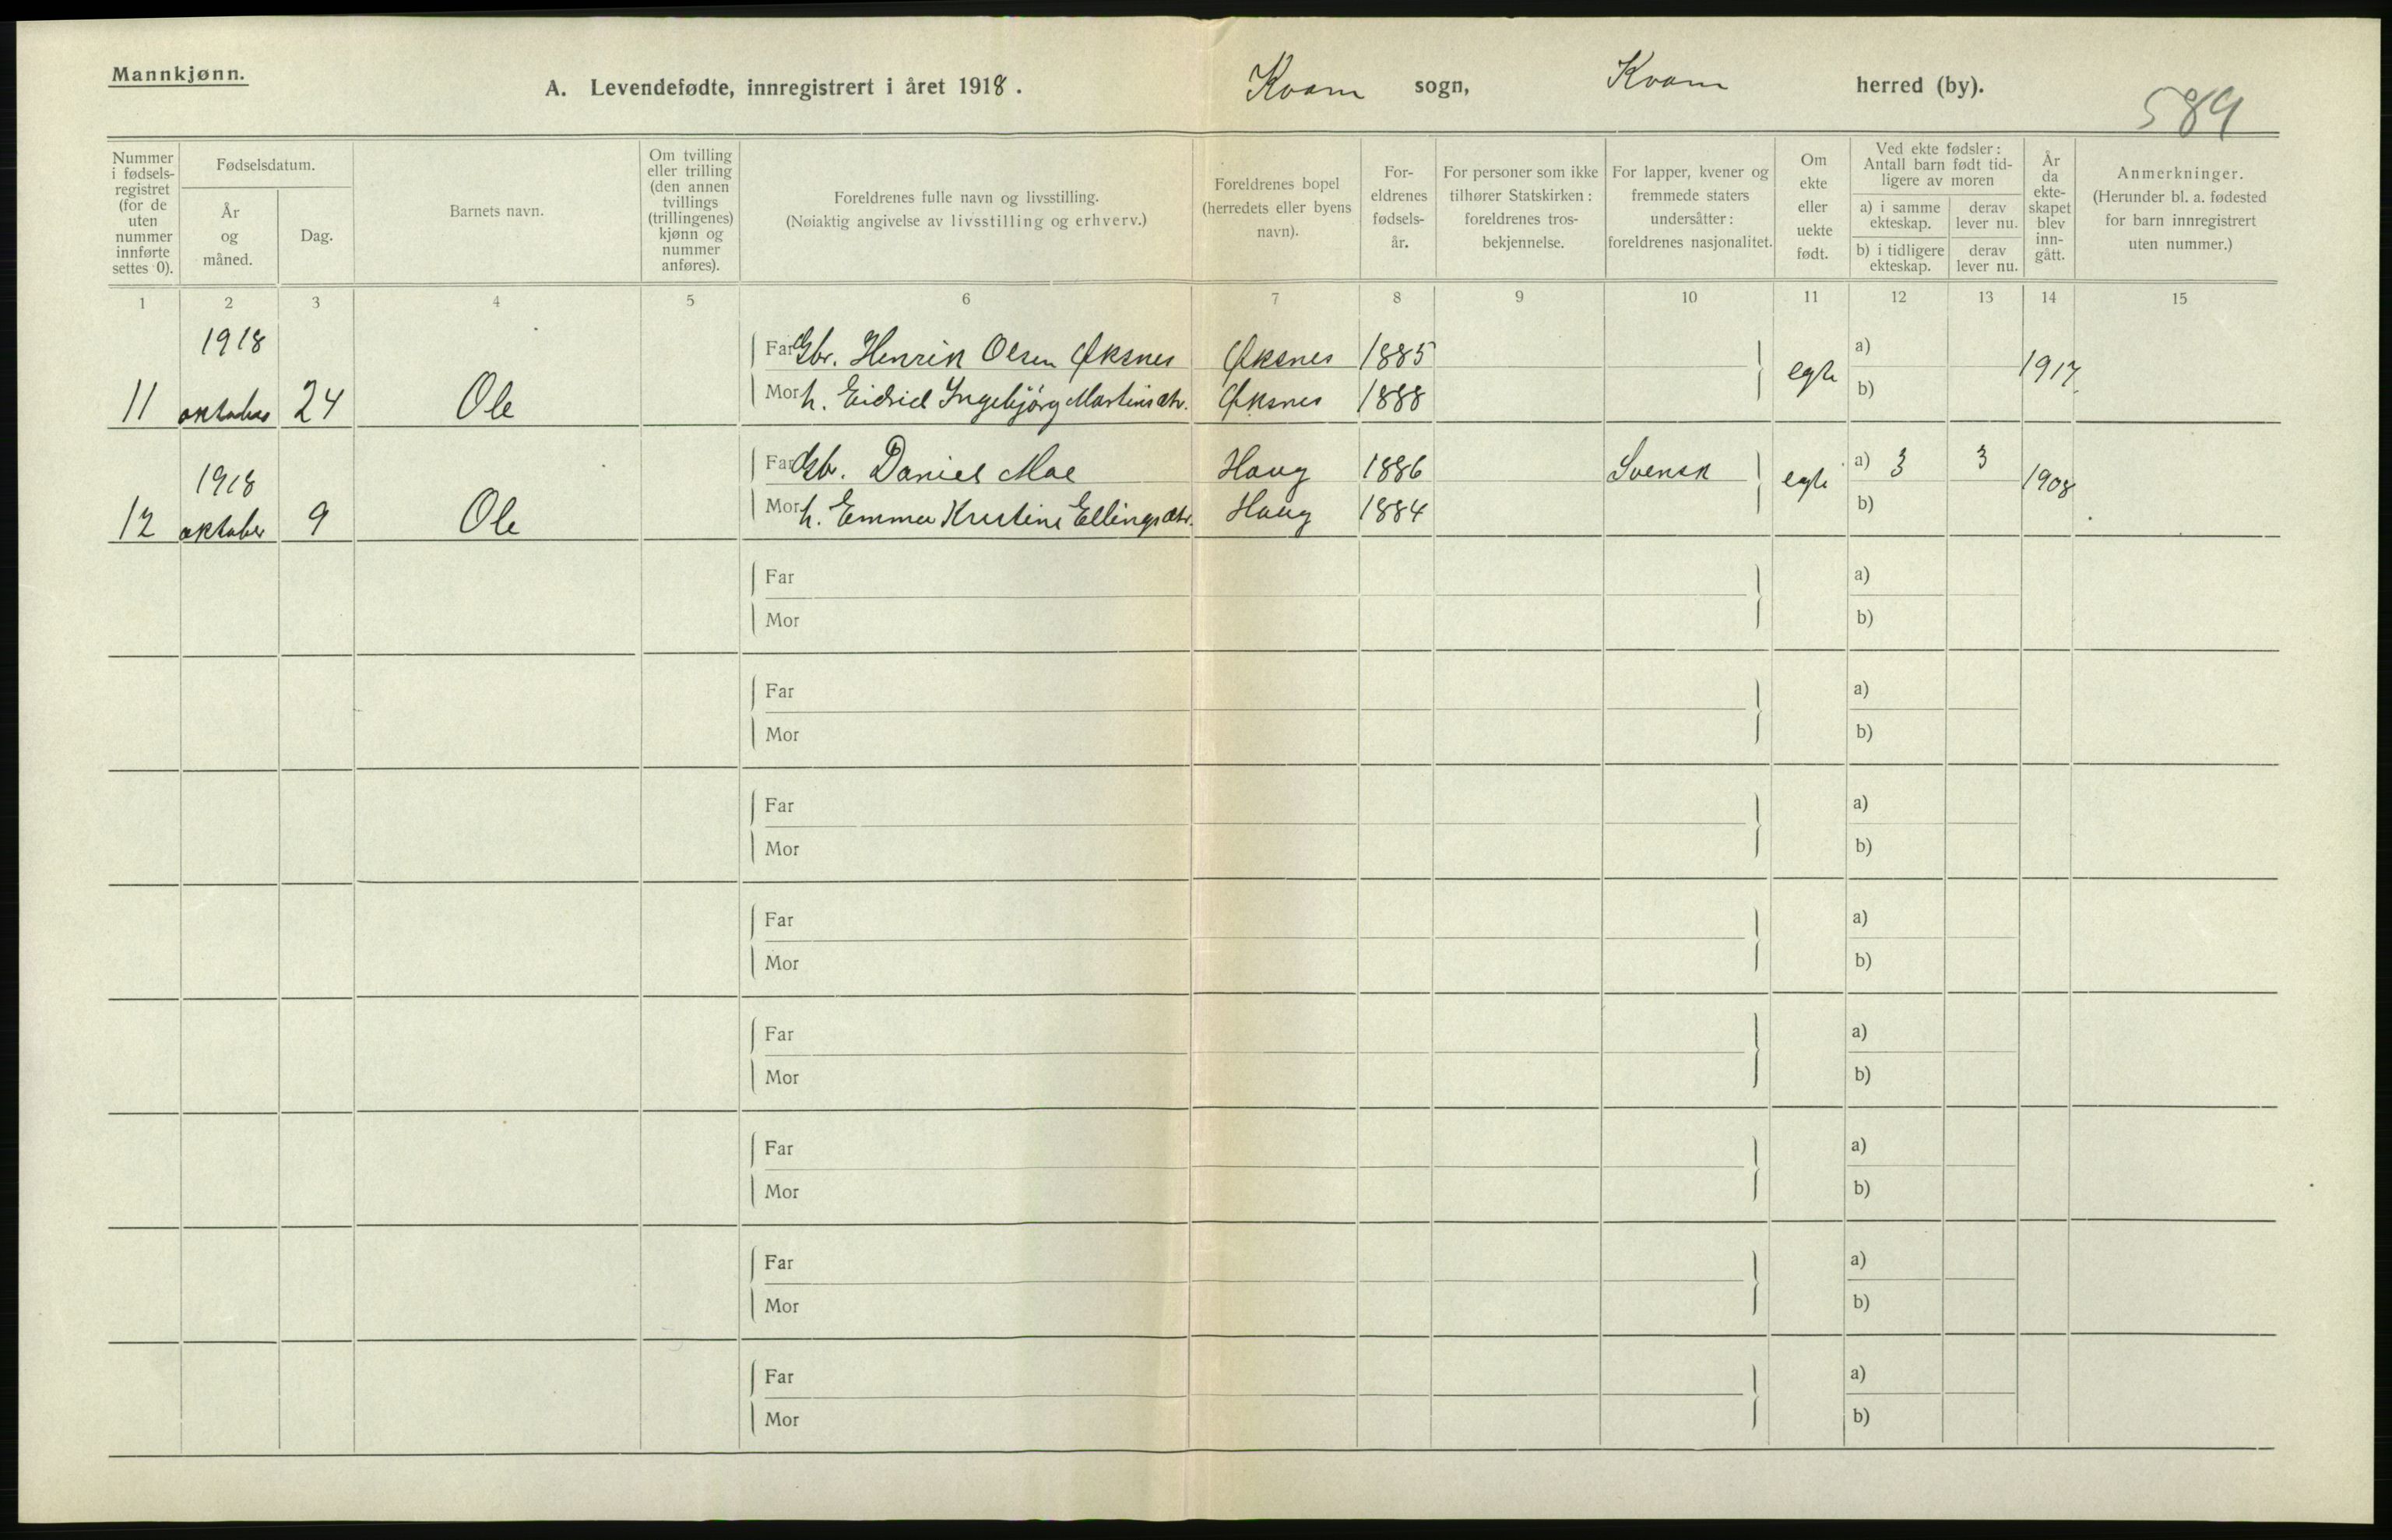 Mannkjønn.
A. Levendefødte, innregistrert i året 1918.
Kvam sogn, Kvam herred (by).
589
Nummer i fødsels-registret (for de uten nummer innførte settes 0).
Fødselsdatum.
År og måned.
Dag.
Barnets navn.
Om tvilling eller trilling (den annen tvillings (trillingenes) kjønn og nummer anføres).
Foreldrenes fulle navn og livsstilling.
(Nøiaktig angivelse av livsstilling og erhverv.)
Foreldrenes bopel (herredets eller byens navn).
For-eldrenes fødsels-år.
For personer som ikke tilhører Statskirken: foreldrenes tros-bekjennelse.
For lapper, kvener og fremmede staters undersåtter: foreldrenes nasjonalitet.
Om ekte eller uekte født.
Ved ekte fødsler: Antall barn født tid-ligere av moren
a) i samme ekteskap.
derav lever nu.
b) i tidligere ekteskap.
derav lever nu.
År da ekte-skapet blev inn-gått.
Anmerkninger.
(Herunder bl. a. fødested for barn innregistrert uten nummer.)
1 2 3 4 5 6 7 8 9 10 11 12 13 14 15
1918
Far Gbr. Henrik Olsen Øksnes Øksnes 1885 a)
11 oktober 24 Ole Mor h. Eidrid Ingebjörg Martinsdtr. Øksnes 1888 egte b) 1917
1918
Far Gbr. Daniel Moe Haug 1886 Svensk a) 3 3
12 oktober 9 Ole Mor h. Emma Kristine Ellingsdtr. Haug 1884 egte b) 1908
Far a)
Mor b)
Far a)
Mor b)
Far a)
Mor b)
Far a)
Mor b)
Far a)
Mor b)
Far a)
Mor b)
Far a)
Mor b)
Far a)
Mor b)